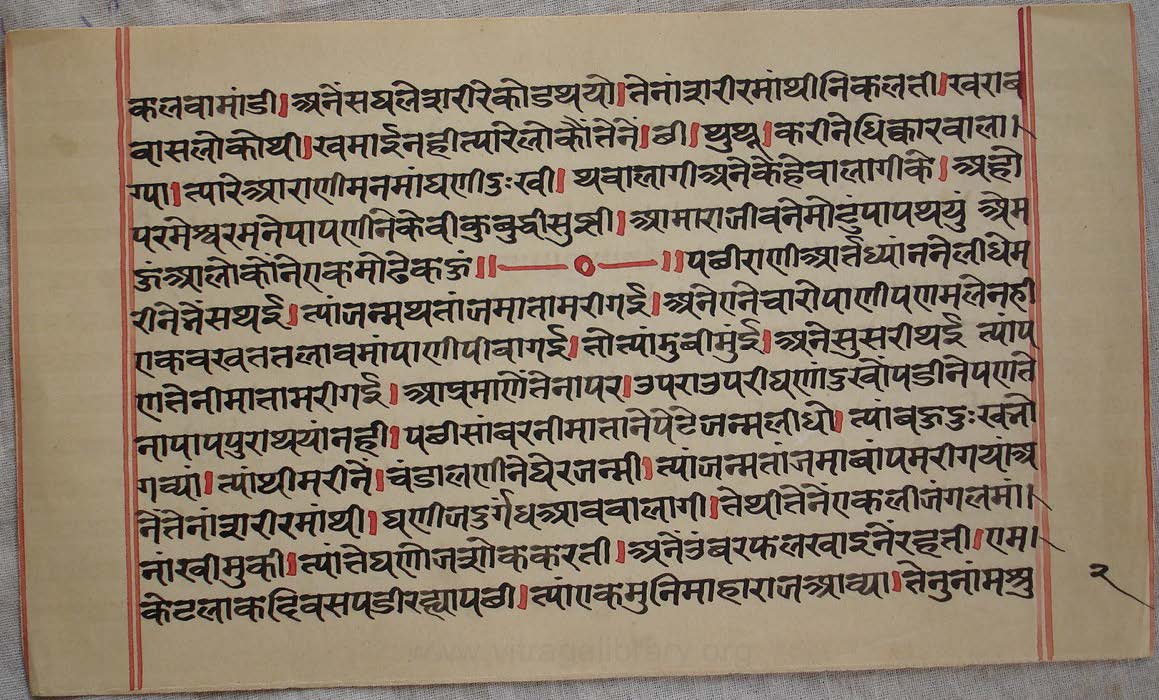 कलवामांडी।अनेंसघलेशरीरेकोडथयो।तेनांशरीरमांथीनिकलती।खराब
वासलोकोथी।खमाईनहीत्यारेलोकौंतेनें।छी।थुथू।करीनेधिक्कारवाला।
ग्या।त्यारेआराणीमनमांघणीदुःखी।थवालागीअनेकैहेवालागीके।अहो
परमेश्वरमनेपापणीनेकेवीकुबुद्वीसुझी।आमाराजीवनेमोटुपापथयुं अेम
ऊंआलोकोंनेएकमोढेकऊं॥—०—॥पछीराणीआर्तध्यांननेलीधेम
रीनेभेंसथई।त्यांजन्मथतांजमातामरीगई।अनेएनेचारोपाणीपणमलेनही
एकवखततलावमांपाणीपीवागई।तोत्यांडुबीमुंई।अनेसुसरीथई त्यांप
णतेनीमातामरीगई।आप्रमाणेंतेनापर।उपराउपरीघणांदुखोंपडीनेपणते
नापापपुराथयांनही।पछीसांबरनीमातानेपेटेजन्मलीधो।त्यांबऊदुःखनो
गव्यां।त्यांथीमरीनें।चंडालणीनेघेरजन्मी।त्यांजन्मतांजमाबांपमरीगयांअ
नेंतेनांशरीरमांथी।घणीजदुर्गंधआववालागी।तेथीतेनेंएकलीजंगलमां।
नांखीमुकी।त्यांतेघणोजशोककरती।अनेउंबरफलखाइनेंरहती।एम।
केटलाकदिवसपडीरह्यापछी।त्यांएकमुनिमाहाराजआव्या।तेनुनांमश्रु
२
www.vitragelibrary.org